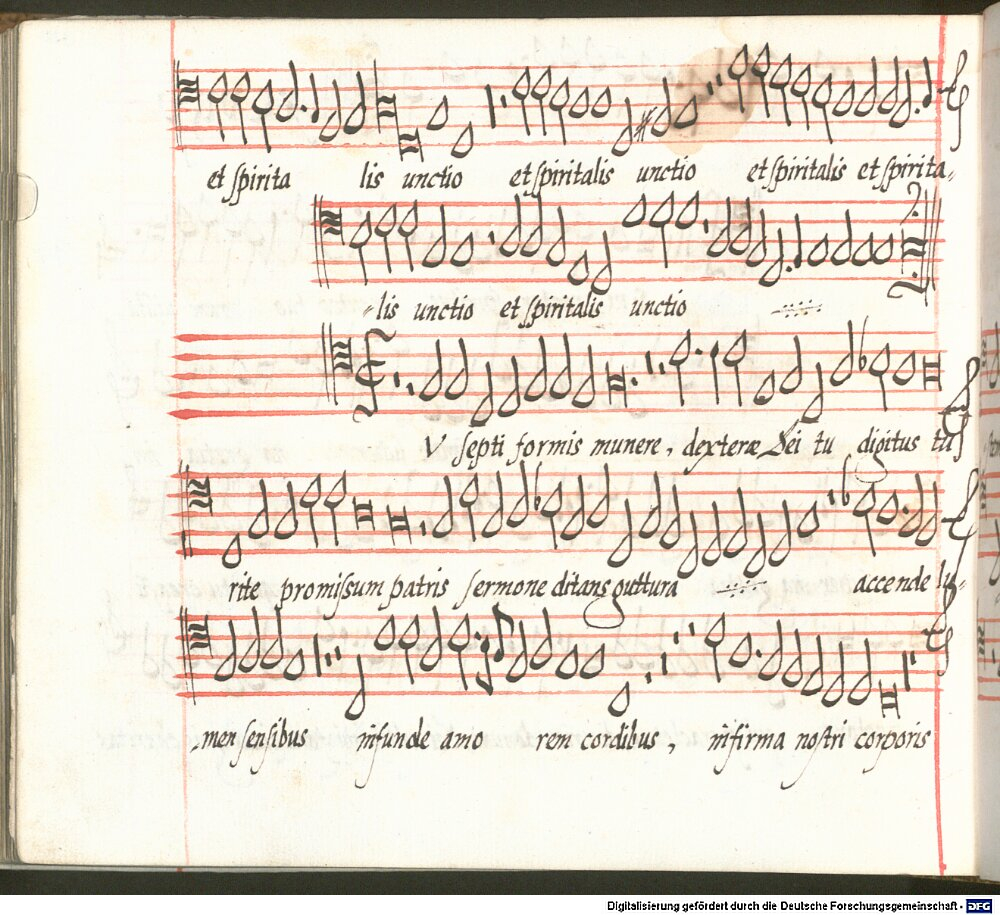 et spirita lis unctio et spiritalis unctio et spiritalis et spirita-
-lis unctio et spiritalis unctio
V septi formis munere, dexteræ Dei tu digitus tu
rite promissum patris sermone ditans guttura accende lu-
-men sensibus infunde amo rem cordibus, infirma nostri corporis
Digitalisierung gefördert durch die Deutsche Forschungsgemeinschaft - DFG